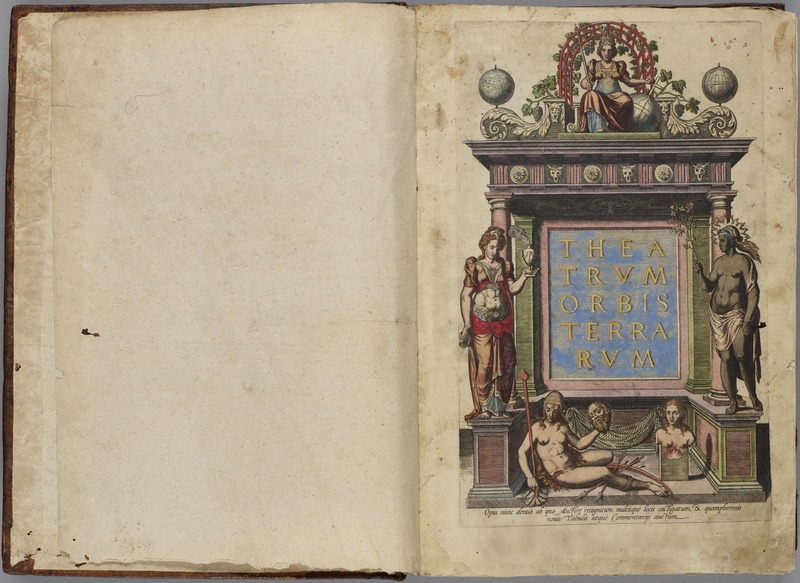 THEA
TRVM
ORBIS
TERRA
RVM
Opus nunc denuò ab ipso Auctore recognitum, multisque locis castigatum, & quamplurimis
nouis Tabulis atque Commentarijs auctum.